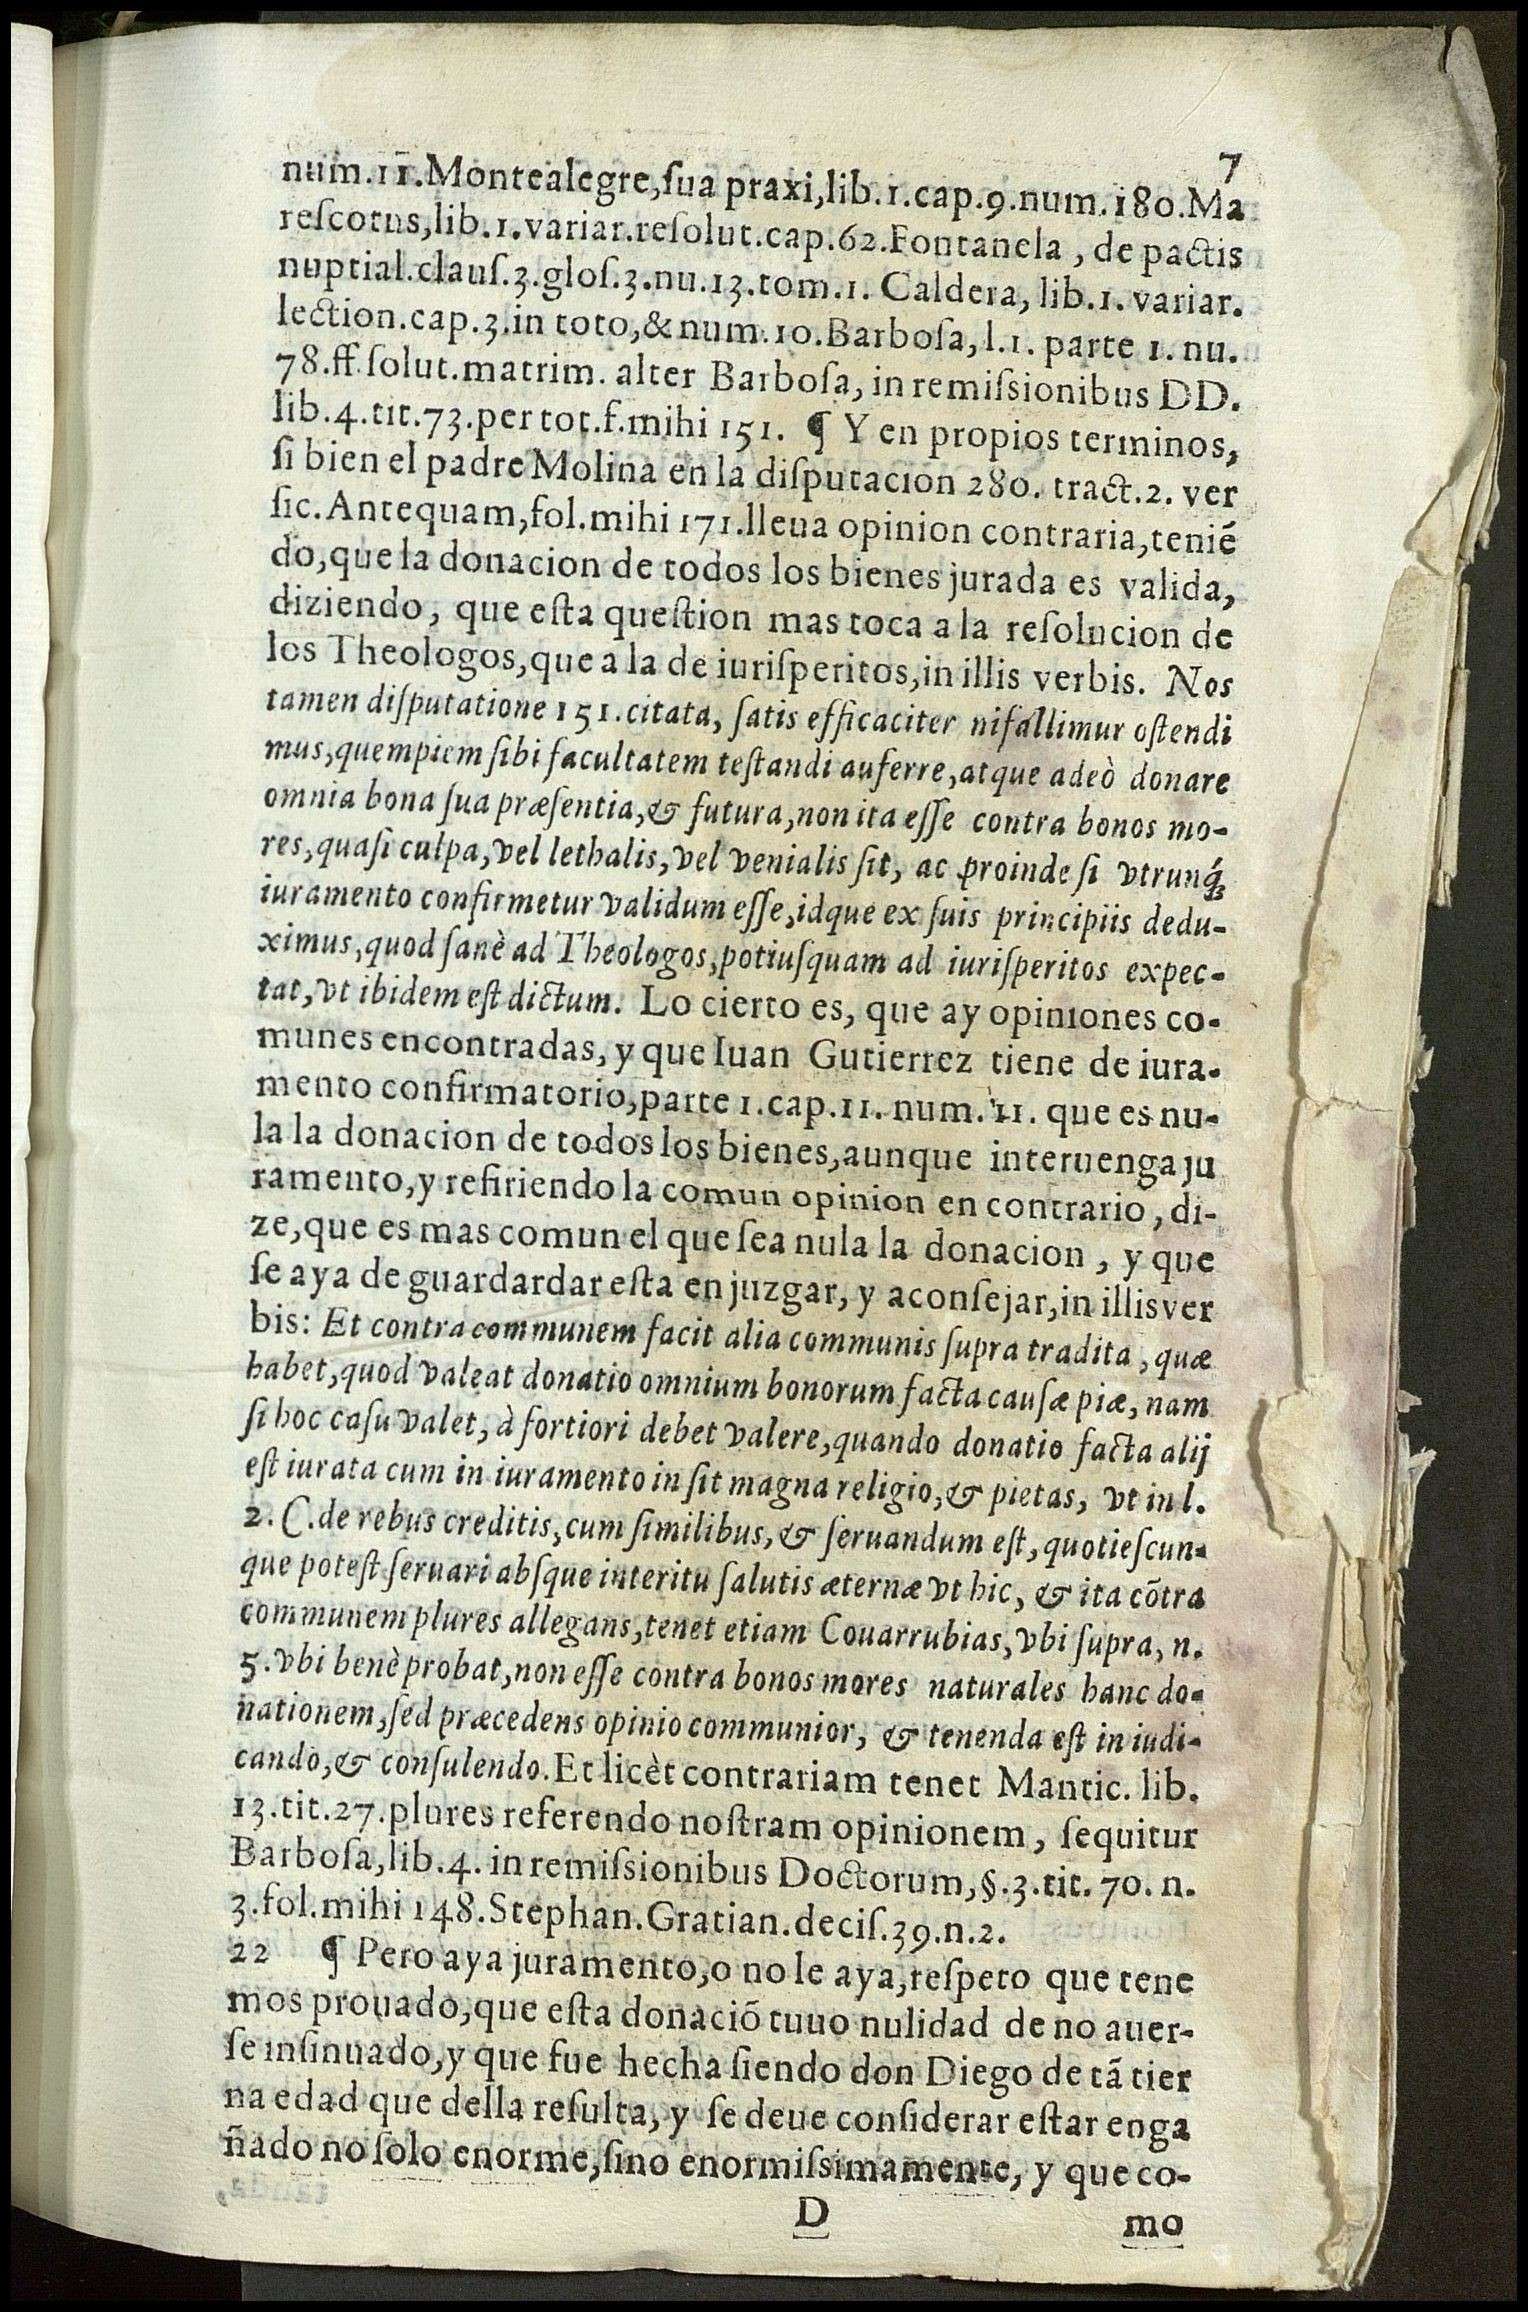 7
num.11.Montealegre,ſua praxi,lib.1.cap.9.num.180.Ma
reſcotus,lib.1.variar.reſolut.cap.62.Fontanela, de pactis
nuptial.clauſ.3.gloſ.3.nu.13.tom.1. Caldera, lib.1. variar.
lection.cap.3.in toto,& num.10.Barboſa, l.1. parte 1. nu.
78.ff.ſolut.matrim. alter Barboſa, in remiſsionibus DD.
lib.4.tit.73.per tot.f.mihi 151. ¶ Y en propios terminos,
ſi bien el padre Molina en la diſputacion 280. tract.2. ver
ſic.Antequam,fol.mihi 171.lleua opinion contraria,teniẽ
do,que la donacion de todos los bienes jurada es valida,
diziendo, que eſta queſtion mas toca a la reſolucion de
los Theologos,que a la de iuriſperitos,in illis verbis. Nos
tamen diſputatione 151.citata, ſatis efficaciter nifallimur oſtendi
mus,quempiem ſibi facultatem teſtandi auferre,atque adeò donare
omnia bona ſua præſentia,& futura,non ita eſſe contra bonos mo-
res,quaſi culpa,vel lethalis,vel venialis ſit, ac proinde ſi vtrunq́;
iuramento confirmetur validum eſſe,idque ex ſuis principiis dedu-
ximus,quod ſanè ad Theologos,potiuſquam ad iuriſperitos expec-
tat,vt ibidem eſt dictum. Lo cierto es, que ay opiniones co-
munes encontradas, y que Iuan Gutierrez tiene de iura-
mento confirmatorio,parte 1.cap.11. num.11. que es nu-
la la donacion de todos los bienes,aunque interuenga ju
ramento,y refiriendo la comun opinion en contrario, di-
ze,que es mas comun el que ſea nula la donacion, y que
ſe aya de guardardar eſta en juzgar, y aconſejar,in illis ver
bis: Et contra communem facit alia communis ſupra tradita, quæ
habet,quod valeat donatio omnium bonorum facta cauſæ piæ, nam
ſi hoc caſu valet, à fortiori debet valere,quando donatio facta alij
eſt iurata cum in iuramento in ſit magna religio,& pietas, vt in l.
2. C.de rebus creditis,cum ſimilibus, & ſeruandum eſt, quotieſcun-
que poteſt ſeruari abſque interitu ſalutis æternæ vt hic, & ita cõtra
communem plures allegans,tenet etiam Couarrubias, vbi ſupra, n.
5.vbi benè probat,non eſſe contra bonos mores naturales hanc do-
nationem,ſed præcedens opinio communior, & tenenda eſt in iudi-
cando,& conſulendo.Et licèt contrariam tenet Mantic. lib.
13.tit.27.plures referendo noſtram opinionem, ſequitur
Barboſa,lib.4. in remiſsionibus Doctorum,§.3.tit. 70. n.
3.fol.mihi 148.Stephan.Gratian.deciſ.39.n.2.
22 ¶ Pero aya juramento,o no le aya,reſpeto que tene
mos prouado,que eſta donaciõ tuuo nulidad de no auer-
ſe inſinuado,y que fue hecha ſiendo don Diego de tã tier
na edad que della reſulta, y ſe deue conſiderar eſtar enga
ñado no ſolo enorme,ſino enormiſsimamente, y que co-
D
mo